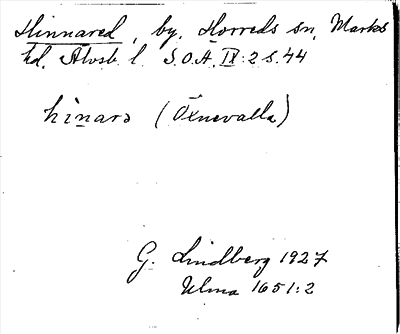 Hinnared, by, Horreds sn, Marks
hd. Älvsb l. S.O.Ä. IX:2 s. 44
hinarə (Öxnevalla)
G. Lindberg 1927
Ulma 1651:2